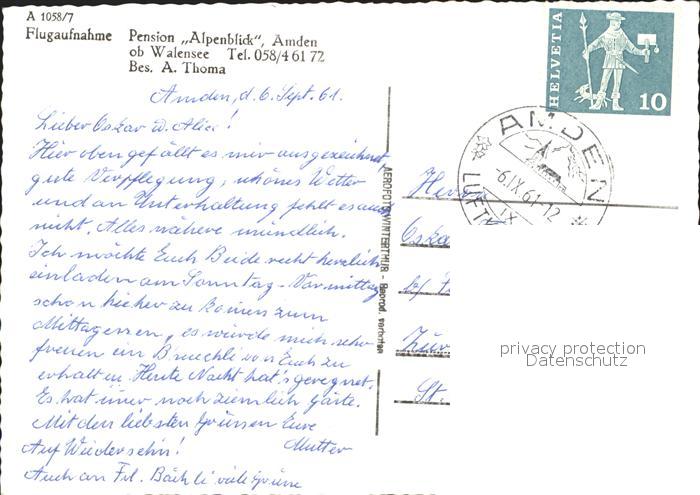 A 1058/7
Flugaufnahme Pension „Alpenblick", Amden
ob Walensee Tel. 058/4 61 72
Bes. A. Thoma
HELVETIA
10
AMDEN
-6.IX.61-12
LUFTK
IX
Amden, d. 6. Sept. 61.
Lieber Oskar u. Alice!
Hier oben gefällt es mir ausgezeichnet,
gute Verpflegung, schönes Wetter
und an Unterhaltung fehlt es auch
nicht. Alles nähere mündlich.
Ich möchte Euch Beide recht herzlich
einladen am Sonntag-Vormittag
schon hieher zu kommen zum
Mittagessen, es würde mich sehr
freuen ein Bsuechli von Euch zu
erhalten. Heute Nacht hat's geregnet.
Es hat immer noch ziemlich Gäste.
Mit den liebsten Grüssen Eure
Auf Wiedersehn! Mutter
Auch an Frl. Bächli viele Grüsse
AEROFOTO WINTERTHUR - Reprod. verboten
Her
Oska
b/
Zür
St.
privacy protection
Datenschutz